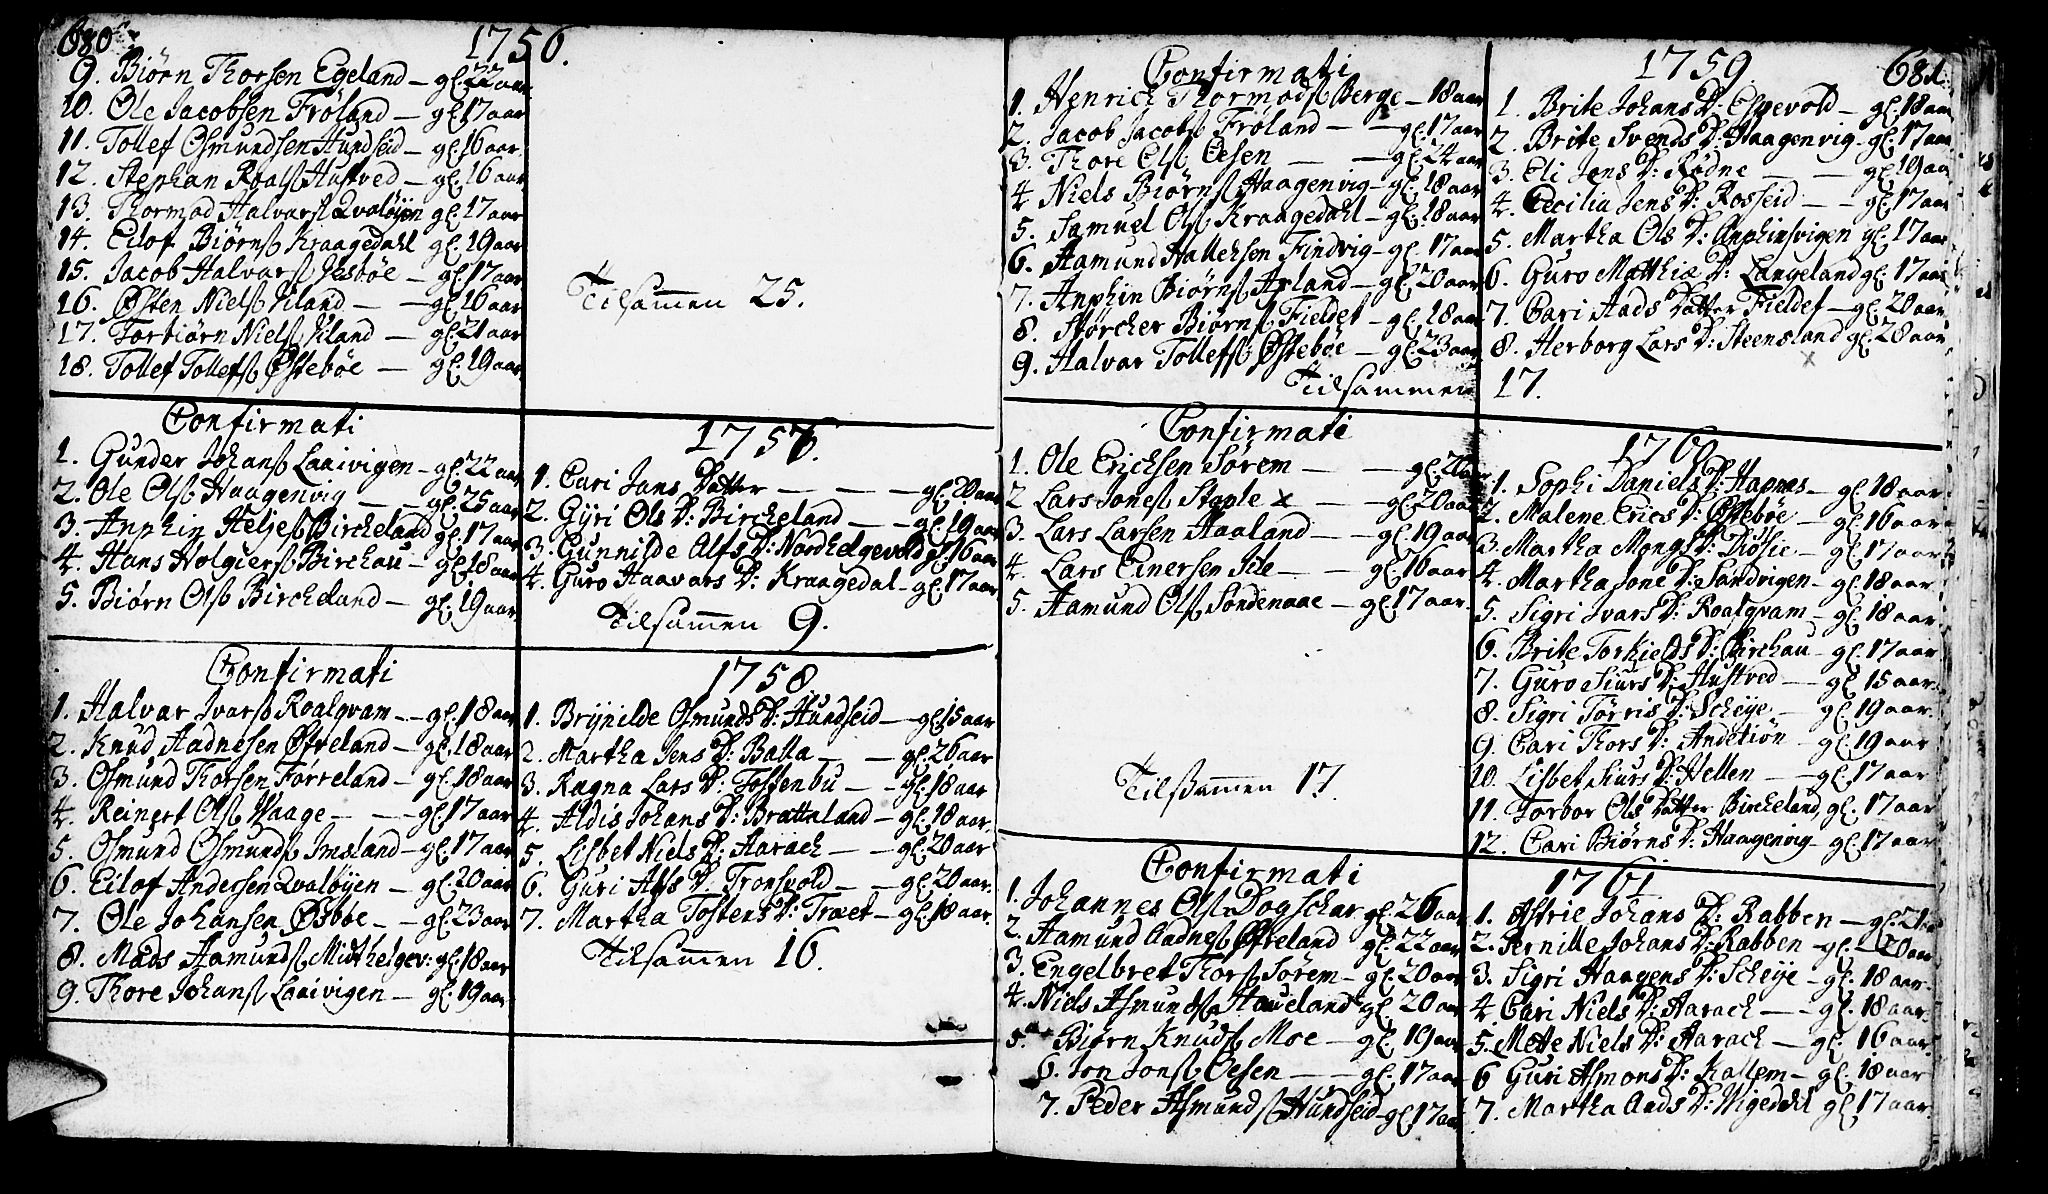 680
1756.
9. Biørn Thorsen Egeland — gl. 22 aar
10. Ole Jacobsen Frøland — gl. 17 aar
11. Tollef Osmundsen Hundseid — gl. 16 aar.
12. Stephan Roals Hustved — gl. 16 aar
13. Thormod Halvars Qvaløyen gl. 17 aar
14. Eilof Biørns Kraagedahl gl. 19 aar
15. Jacob Halvars Jesbøe — gl. 17 aar
16. Østen Niels Iland — — gl. 16 aar
17. Torbiørn Niels Iland — gl. 21 aar
18. Tollef Tollefs Østebøe — gl. 19 aar.
Tilsamen 25.
Confirmati
1757.
1. Gunder Johans Laaivigen — gl. 22 aar
2. Ole Ols Haagenvig — gl. 25 aar
3. Anphin Heljes Birckeland gl. 17 aar
4. Hans Holgiers Birchau — gl. 18 aar
5. Biørn Ols Birckeland — gl. 19 aar.
1. Cari Jans Datter — — — gl. 20 aar
2. Gyri Ols D: Birckeland — — gl. 19 aar
3. Gunnilde Alfs D: Nordhelgevold gl. 16 aar
4. Guro Haavars D: Kraagedal — gl. 17 aar
Tilsamen 9.
Confirmati
1758
1. Halvar Ivars Roalqvam — gl. 18 aar
2. Knud Aadnesen Øfreland — gl. 18 aar
3. Osmund Thorsen Førreland — gl. 18 aar
4. Reinert Ols Waage — — gl. 17 aar
5. Osmund Osmunds Imsland — gl. 17 aar
6. Eilof Andersen Qvaløyen — gl. 20 aar
7. Ole Johansen Østbøe — gl. 23 aar
8. Mads Aamunds Midthelgev: gl. 18 aar
9. Thore Johans Laaivigen — gl. 19 aar
1. Brynilde Osmunds D: Hundseid — gl. 15 aar
2. Martha Jens D: Batta — — gl. 26 aar
3. Ragna Lars D: Tostenbu — gl. 18 aar
4. Aldis Johans D: Brattaland — gl. 18 aar.
5. Lisbet Niels D: Aarach — — gl. 20 aar
6. Guri Alfs D. Tronsvold — — gl. 20 aar.
7. Martha Tostens D: Træet — gl. 18 aar.
Tilsamen 16.
681.
Confirmati
1759.
1. Henrich Thormods Berge — 18 aar
2. Jacob Jacobs Frøland — — gl. 17 aar
3. Thore Ols Oesen — — gl. 24 aar
4 Niels Biørns Haagenvig — gl. 18 aar
5. Samuel Ols Kraagedahl — gl. 18 aar
6. Aamund Halleksen Findvig — gl. 17 aar
7. Anphin Biørns Asland — gl. 20 aar
8. Størcher Biørns Fieldet — gl. 18 aar
9. Halvar Tollefs Østebøe — gl. 23 aar
1. Brite Johans D: Espevold — gl. 18 aar
2. Brite Svends D: Haagenvig — gl. 17 aar
3. Eli Jens D: Rødne — — gl. 19 aar
4. Cecilia Jens D: Rosseid — — gl. 17 aar
5. Martha Ols D: Anphinsvigen gl. 17 aar
6. Guro Matthiæ D: Langeland gl. 17 aar
7. Cari Aads Datter Fieldet — gl. 20 aar
8. Herborg Lars D: Steensland gl. 28 aar
Tilsammen 17.
Confirmati
1760
1. Ole Ericksen Sørem — — gl. 20
2 Lars Jones Stople x — — gl. 20 aar
3. Lars Larsen Haaland — — gl. 19 aar
4. Lars Einersen Ile — — gl. 16 aar
5. Aamund Ols Søndenaae — gl. 17 aar.
1. Sophi Daniels D: Hapnas — gl. 18 aar
2. Malene Erics D: Østebøe — gl. 16 aar
3. Martha Mongs D: Diøsie — gl. 17 aar
4. Martha Jone D: Sandvigen — gl. 18 aar
5. Sigri Ivars D: Roalqvam — gl. 18 aar.
6. Brite Torkields D: Birchau — gl. 17 aar
7. Guro Siurs D: Hustved — gl. 15 aar.
8. Sigri Tørris D: Scheje — gl. 19 aar.
9. Cari Thors D: Andetiøn — gl. 19 aar
10. Lisbet Siurs D: Hellen — gl. 17 aar
11. Torbor Ols Datter Birckeland, gl. 17 aar
12. Cari Biørns D: Haagenvig — gl. 17 aar
Tilsamen 17.
Confirmati
1761
1. Johannes Ols Dogschar gl. 26 aar
2. Aamund Aadnes Øfreland gl. 22 aar
3. Engelbret Thors Sørem — gl. 20 aar
4. Niels Asmunds Haueland gl. 20 aar
5. Biørn Knuds Moe — gl. 19 aar
6. Jon Jons Oesen — — gl. 17 aar
7. Peder Asmunds Hundseid — gl. 17 aar
1. Astrie Johans D: Rabben — gl. 21
2. Pernille Johans D: Rabben — gl. 20 aar
3. Sigri Haagens D: Scheje — gl. 18 aar.
4 Cari Niels D: Aarach — — gl. 18 aar.
5. Mete Niels D: Aarach — gl. 16 aar
6 Guri Asmons D: Kallem — gl. 18 aar
7. Martha Aads D: Vigedahl gl. 17 aar.